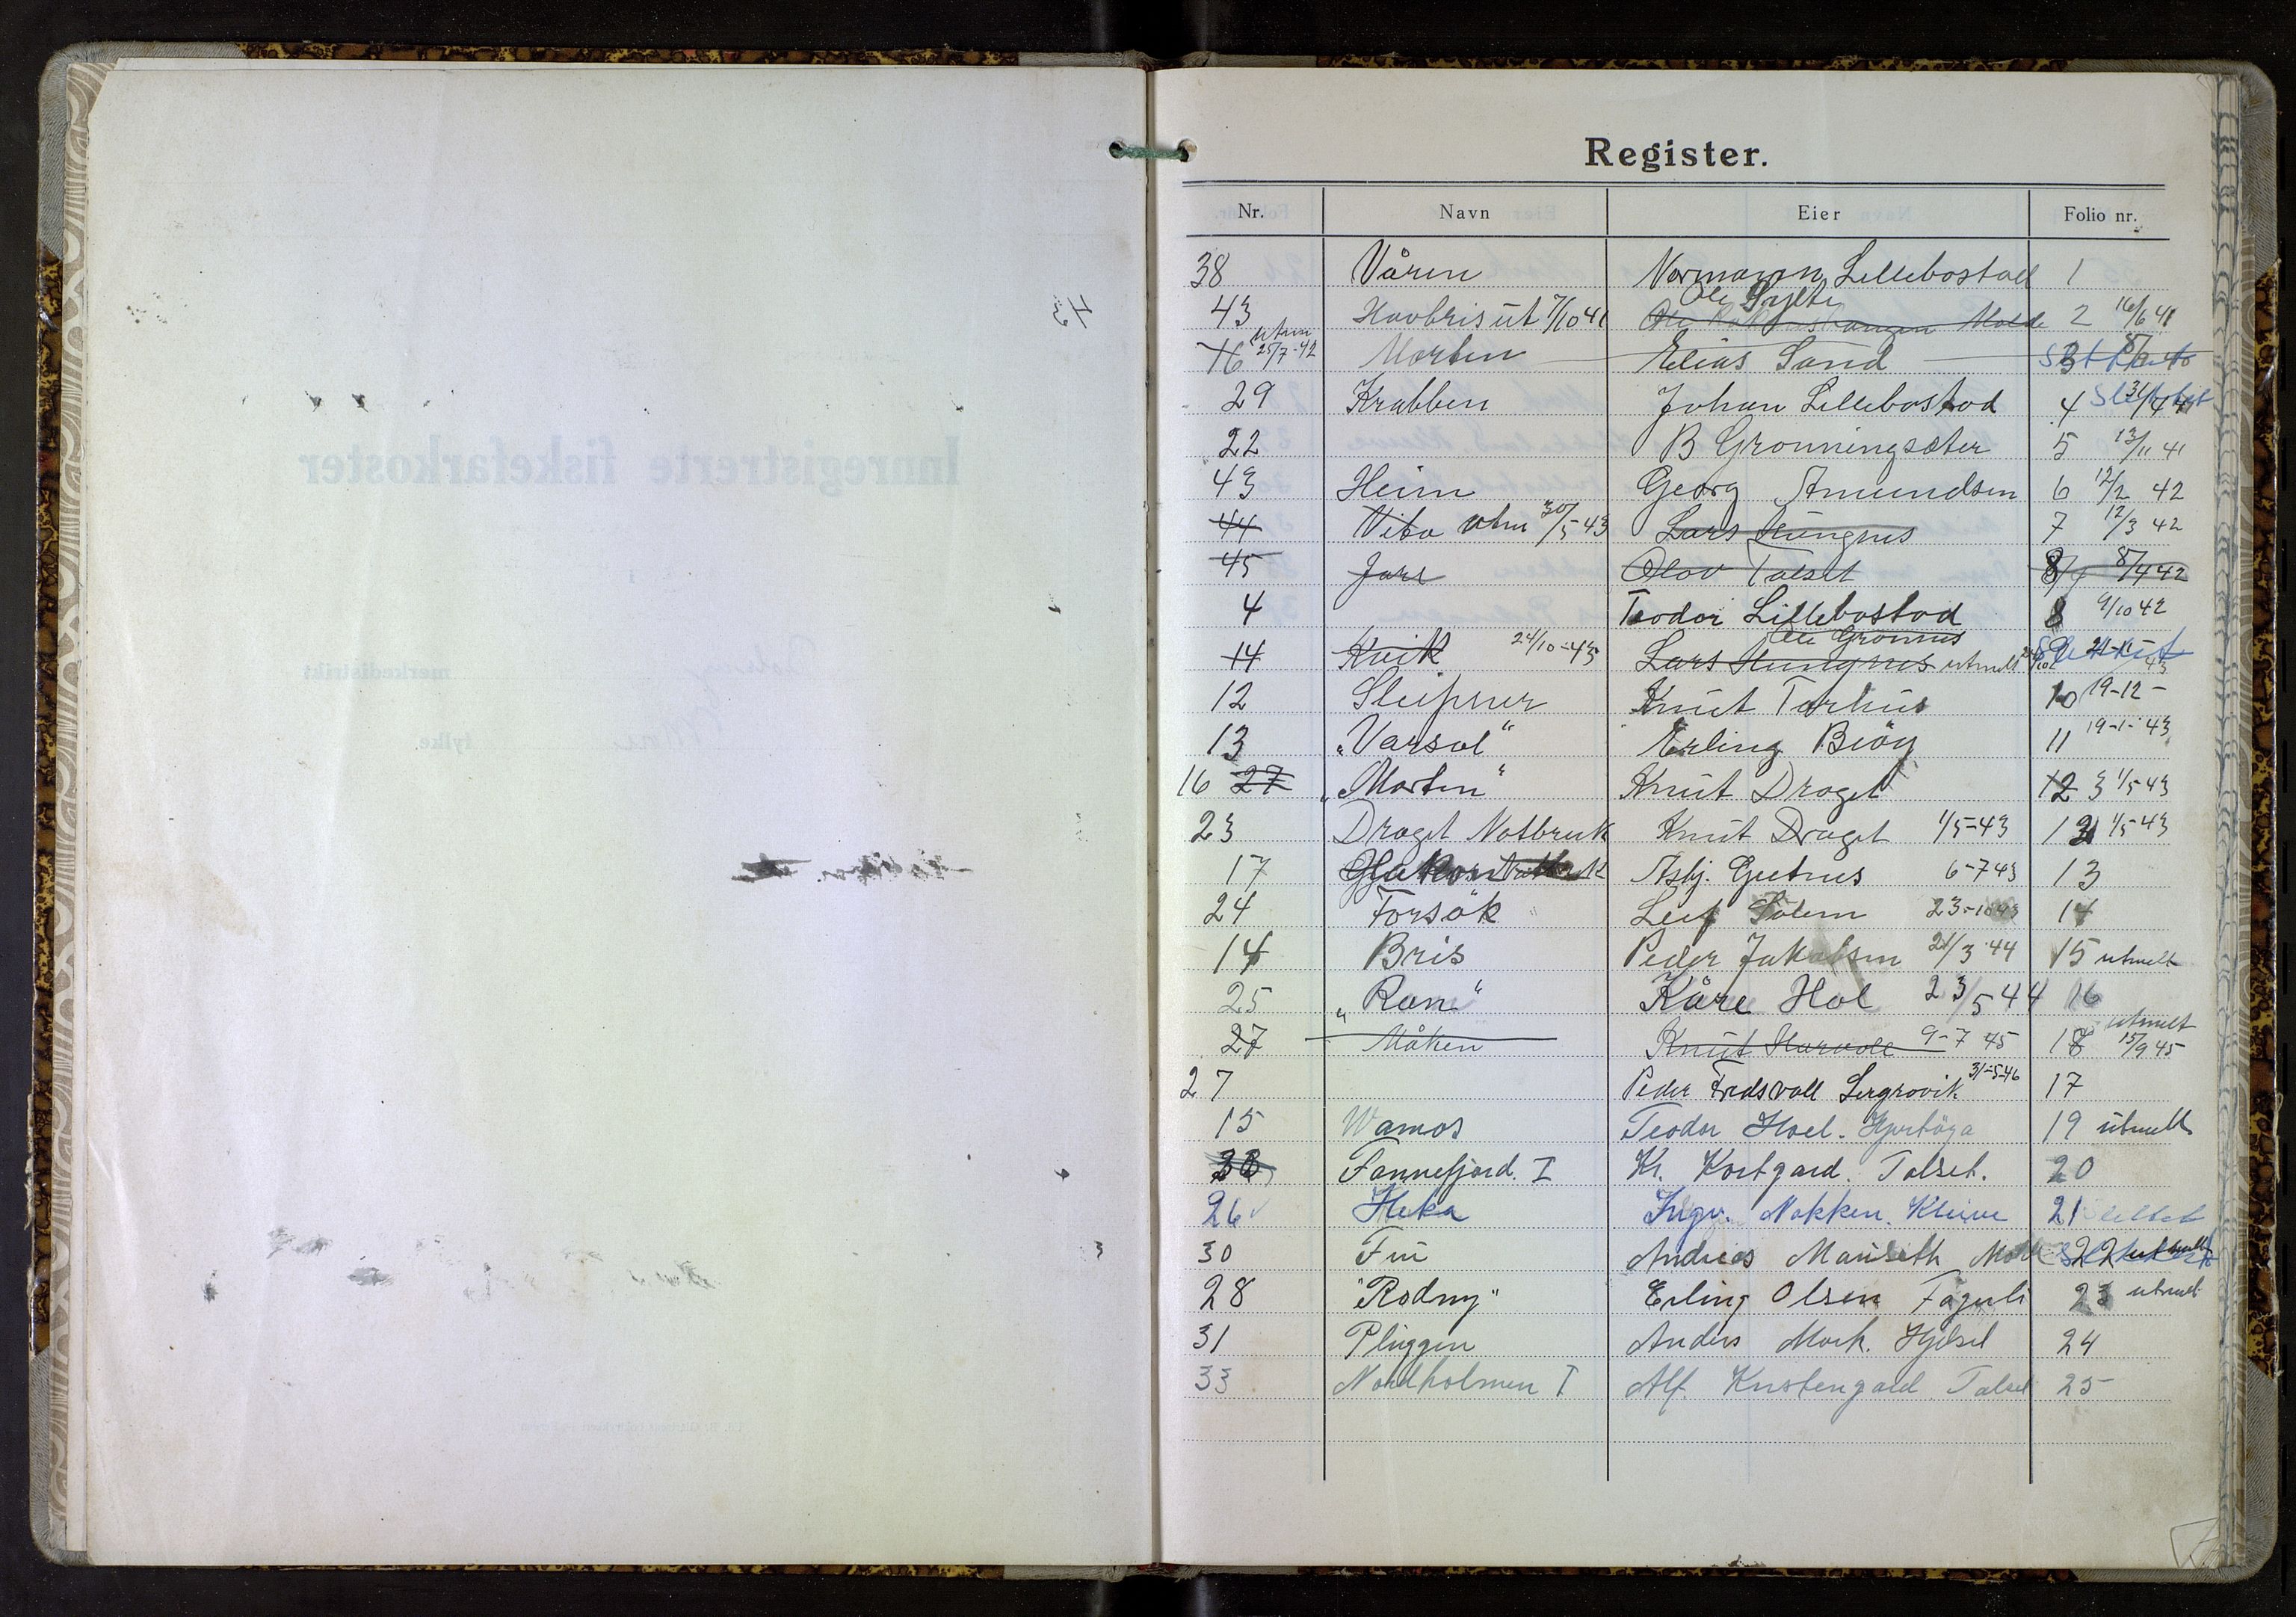 Register.
Nr. Navn Eier Folio nr.
38 Våren Normann Lillebostad 1
Ole Sylte
43 Havbris ut 7/10 41 Molde 2 16/6 41
16 utm 25/7-42 Morten Elias Sand 3
29 Krabben Johan Lillebostad 4 Slettet 31/4 41
22 B Grønningsæter 5 13/11 41
43 Heim Georg Amundsen 6 12/2 42
44 Vibo utm 30/5 43 Lars Hungnes 7 12/3 42
45 Jarl Olav Talset 8 8/4 42
4 Teodor Lillebostad 8 9/10 42
Ole Grønnes
14 Kvik 24/10-43 Lars Hungnes utmelt 24/10 Slettet 21-11 43
12 Sleipner Knut Torhus 10 19-12-
13 „Varsol“ Erling Biøy 11 19-1-43
16 27 „Morten“ Knut Draget 12 3 1/5 43
23 Draget Notbruk Knut Draget 1/5-43 12 1/5 43
17 Asbj. Gjetnes 6-7 43 13
24 Forsøk Leif Solem 23-10 43 14
14 Bris Peder Jakobsen 21/3 44 15 utmelt
25 „Ran“ Kåre Hol 23/5 44 16
27 Måken Knut Harvoll 9-7 45 18 utmelt 15/9 45
27 Peder Eidsvoll Lergrovik 31-5-46 17
15 Wamos Teodor Hoel. Hjertøya 19 utmelt
Fannefjord. I K. Kortgard. Talset. 20
26 Heka Ingv. Nakken. Kleive 21 slettet
30 Fui Andreas Mauseth Molde 22 utmelt
28 "Rodny" Erling Olsen Fagerli 23 utmelt
31 Pluggen Anders Mork. Hjelset 24
33 Nordholmen I Alf. Talset 25